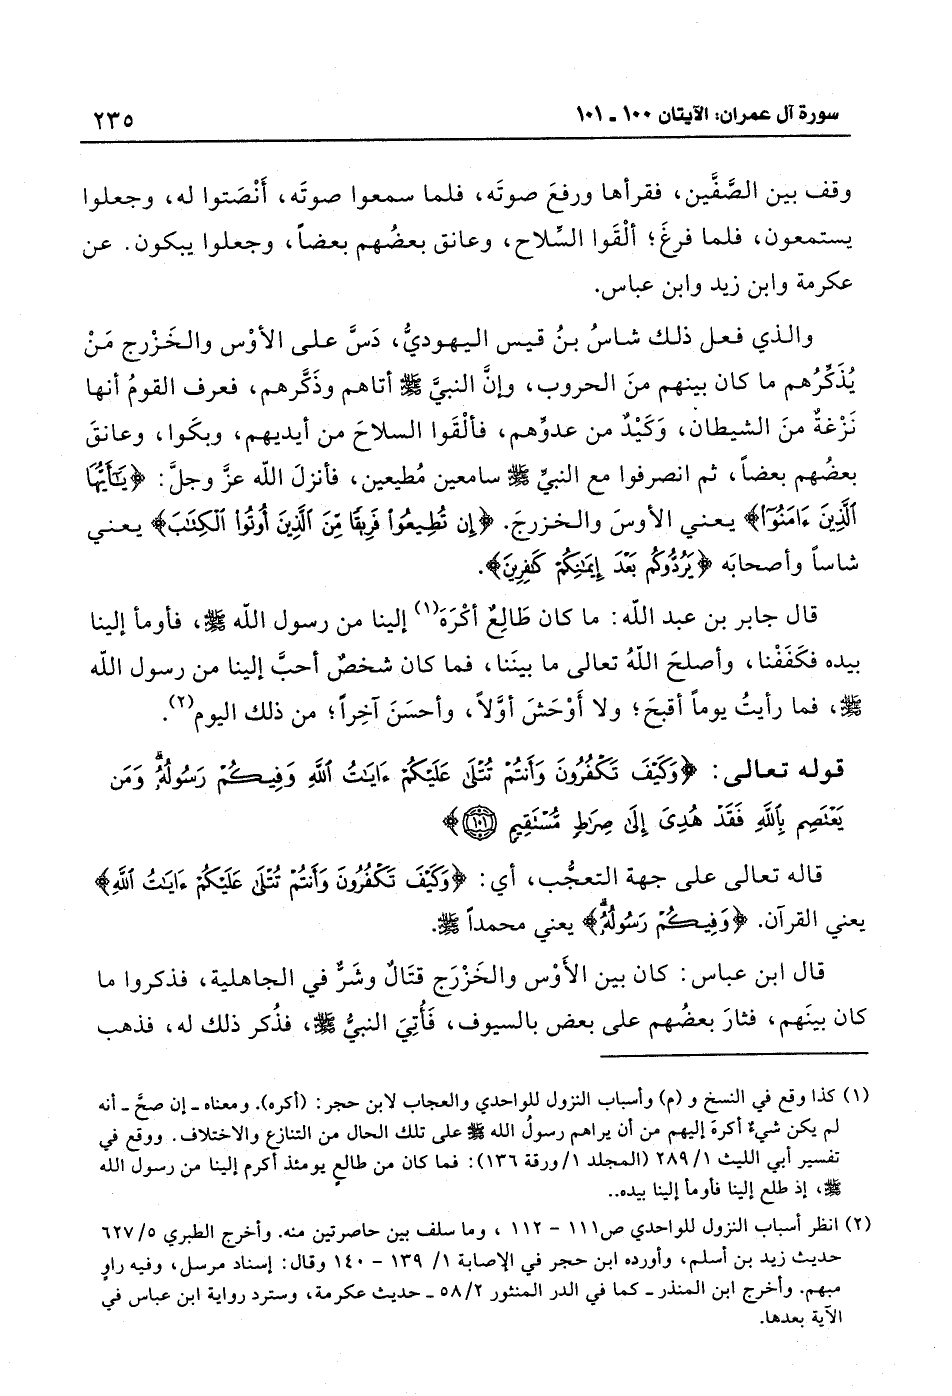 سورة آل عمران: الآيتان ١٠٠ ـ ١٠١
٢٣٥
وقف بين الصَّفَّين، فقرأها ورفعَ صوتَه، فلما سمعوا صوتَه، أَنْصَتوا له، وجعلوا
يستمعون، فلما فرغَ؛ ألْقَوا السِّلاح، وعانق بعضُهم بعضاً، وجعلوا يبكون. عن
عكرمة وابن زيد وابن عباس.
والذي فعل ذلك شاسُ بنُ قيس اليهوديُّ، دَسَّ على الأوْس والخَزْرج مَنْ
يُذَكِّرُهم ما كان بينهم منَ الحروب، وإنَّ النبيَّ ﷺ أتاهم وذَكَّرهم، فعرف القومُ أنها
نَزْغةٌ منَ الشيطان، وَكَيْدٌ من عدوِّهم، فألْقَوا السلاحَ من أيديهم، وبكَوا، وعانقَ
بعضُهم بعضاً، ثم انصرفوا مع النبيِّ ﷺ سامعين مُطيعين، فأنزلَ الله عزَّ وجلَّ: ﴿يَٰٓأَيُّهَا
ٱلَّذِينَ ءَامَنُوٓا۟﴾ يعني الأوسَ والخزرجَ. ﴿إِن تُطِيعُوا۟ فَرِيقًا مِّنَ ٱلَّذِينَ أُوتُوا۟ ٱلْكِتَٰبَ﴾ يعني
شاساً وأصحابَه ﴿يَرُدُّوكُم بَعْدَ إِيمَٰنِكُمْ كَٰفِرِينَ﴾.
قال جابر بن عبد الله: ما كان طَالِعٌ أكْرَهَ(١) إلينا من رسول الله ﷺ، فأومأ إلينا
بيده فكَفَفْنا، وأصلحَ اللهُ تعالى ما بينَنا، فما كان شخصٌ أحبَّ إلينا من رسول الله
ﷺ، فما رأيتُ يوماً أقبحَ؛ ولا أوْحَشَ أوَّلاً، وأحسَنَ آخِراً؛ من ذلك اليوم(٢).
قوله تعالى: ﴿وَكَيْفَ تَكْفُرُونَ وَأَنتُمْ تُتْلَىٰ عَلَيْكُمْ ءَايَٰتُ ٱللَّهِ وَفِيكُمْ رَسُولُهُۥۗ وَمَن
يَعْتَصِم بِٱللَّهِ فَقَدْ هُدِىَ إِلَىٰ صِرَٰطٍ مُّسْتَقِيمٍ ١٠١﴾
قاله تعالى على جهة التعجُّب، أي: ﴿وَكَيْفَ تَكْفُرُونَ وَأَنتُمْ تُتْلَىٰ عَلَيْكُمْ ءَايَٰتُ ٱللَّهِ﴾
يعني القرآن. ﴿وَفِيكُمْ رَسُولُهُۥۗ﴾ يعني محمداً ﷺ.
قال ابن عباس: كان بين الأَوْس والخَزْرَج قتَالٌ وشَرٌّ في الجاهلية، فذكروا ما
كان بينَهم، فثارَ بعضُهم على بعض بالسيوف، فَأُتِيَ النبيُّ ﷺ، فذُكر ذلك له، فذهب
(١) كذا وقع في النسخ و (م) وأسباب النزول للواحدي والعجاب لابن حجر: (أكره). ومعناه ـ إن صحَّ ـ أنه
لم يكن شيءٌ أكرهَ إليهم من أن يراهم رسولُ الله ﷺ على تلك الحال من التنازع والاختلاف. ووقع في
تفسير أبي الليث ٢٨٩/١ (المجلد ١/ ورقة ١٣٦): فما كان من طالعٍ يومئذ أكرم إلينا من رسول الله
ﷺ، إذ طلع إلينا فأومأ إلينا بيده..
(٢) انظر أسباب النزول للواحدي ص١١١ - ١١٢ ، وما سلف بين حاصرتين منه. وأخرج الطبري ٦٢٧/٥
حديث زيد بن أسلم، وأورده ابن حجر في الإصابة ١/ ١٣٩ - ١٤٠ وقال: إسناد مرسل، وفيه راوٍ
مبهم. وأخرج ابن المنذر ـ كما في الدر المنثور ٥٨/٢ ـ حديث عكرمة، وسترد رواية ابن عباس في
الآية بعدها.